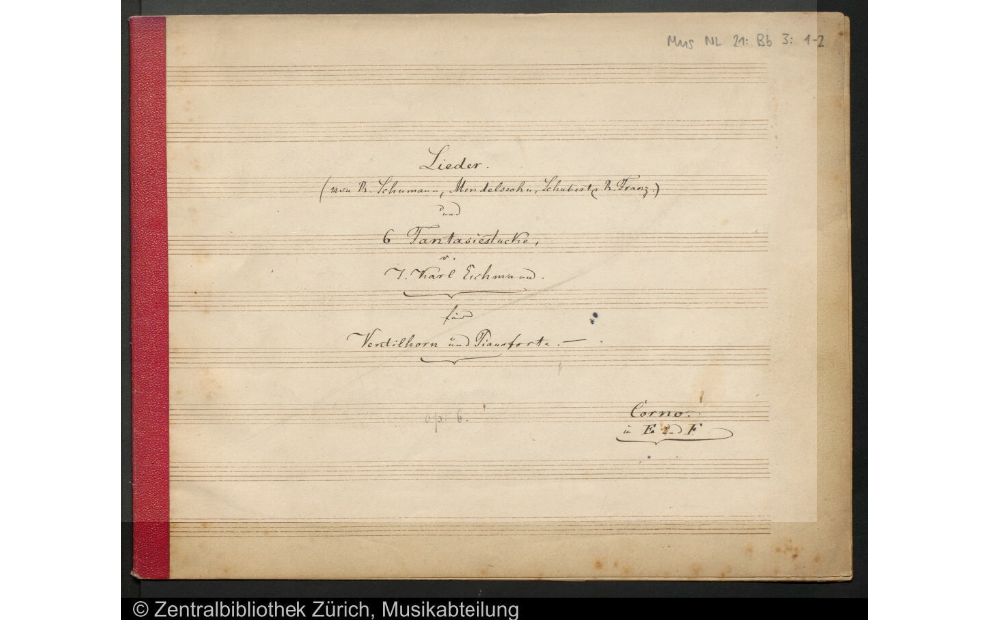 Mus NL 21: Bb 3: 1-2
Lieder.
(von R. Schumann, Mendelssohn, Schubert, R. Franz.)
und
6 Fantasiestücke,
v.
J. Karl Eschmann.
für
Ventilhorn und Pianoforte. —
op. 6.
Corno.
in E und F
© Zentralbibliothek Zürich, Musikabteilung